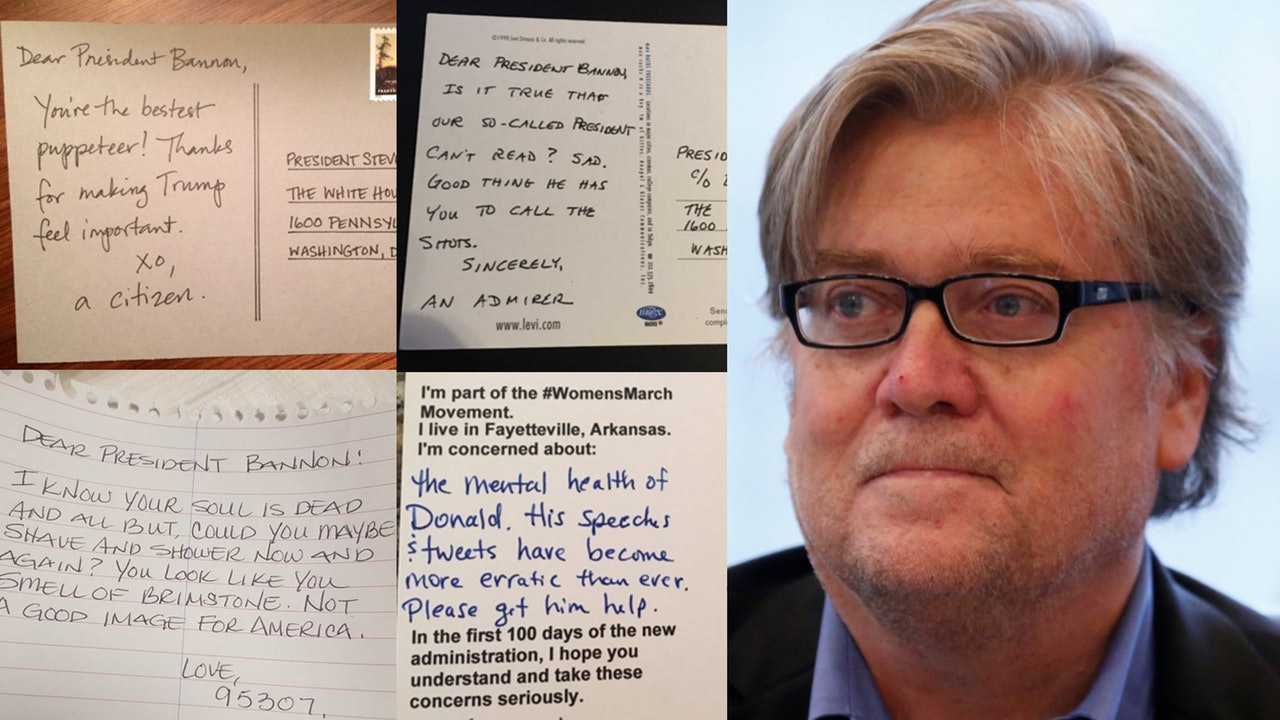 Dear President Bannon,
You're the bestest
puppeteer! Thanks
for making Trump
feel important.
XO,
a citizen.
PRESIDENT STEV
THE WHITE HOU
1600 PENNSYL
WASHINGTON, D
©1998 Levi Strauss & Co. All rights reserved.
DEAR PRESIDENT BANNON,
IS IT TRUE THAT
OUR SO-CALLED PRESIDENT
CAN'T READ? SAD.
GOOD THING HE HAS
YOU TO CALL THE
SHOTS.
SINCERELY,
AN ADMIRER
www.levi.com
PRESID
C/O
THE
1600
WASH
RACKS
Send
compl
DEAR PRESIDENT BANNON:
I KNOW YOUR SOUL IS DEAD
AND ALL BUT, COULD YOU MAYBE
SHAVE AND SHOWER NOW AND
AGAIN? YOU LOOK LIKE YOU
SMELL OF BRIMSTONE. NOT
A GOOD IMAGE FOR AMERICA.
LOVE,
95307,
I'm part of the #WomensMarch
Movement.
I live in Fayetteville, Arkansas.
I'm concerned about:
the mental health of
Donald. His speeches
& tweets have become
more erratic than ever.
Please get him help.
In the first 100 days of the new
administration, I hope you
understand and take these
concerns seriously.